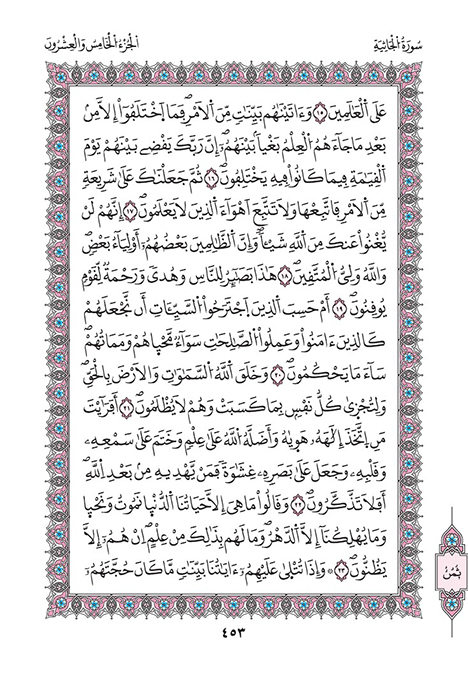 سُورَةُ الْجَاثِيَةِ
الْجُزْءُ الْخَامِسُ وَالْعِشْرُونَ
عَلَى اَلْعَٰلَمِينَ ١٥ وَءَاتَيْنَٰهُم بَيِّنَٰتٖ مِّنَ اَلَامْرِ فَمَا اَخْتَلَفُوٓاْ إِلَّا مِنۢ
بَعْدِ مَا جَآءَهُمُ اُلْعِلْمُ بَغْياَۢ بَيْنَهُمُۥٓ إِنَّ رَبَّكَ يَقْضِے بَيْنَهُمْ يَوْمَ
اَلْقِيَٰمَةِ فِيمَا كَانُواْ فِيهِ يَخْتَلِفُونَ ١٦ ثُمَّ جَعَلْنَٰكَ عَلَىٰ شَرِيعَةٖ
مِّنَ اَلَامْرِ فَاتَّبِعْهَا وَلَا تَتَّبِعَ اَهْوَآءَ اَلذِينَ لَا يَعْلَمُونَ ١٧ إِنَّهُمْ لَنْ
يُّغْنُواْ عَنكَ مِنَ اَللَّهِ شَيْـٔاٗ وَإِنَّ اَلظَّٰلِمِينَ بَعْضُهُمُۥٓ أَوْلِيَآءُ بَعْضٖ
وَاللَّهُ وَلِيُّ اُلْمُتَّقِينَ ١٨ هَٰذَا بَصَٰٓئِرُ لِلنَّاسِ وَهُديٗ وَرَحْمَةٞ لِّقَوْمٖ
يُوقِنُونَ ١٩ أَمْ حَسِبَ اَلذِينَ اَجْتَرَحُواْ اُلسَّيِّـَٔاتِ أَن نَّجْعَلَهُمْ
كَالذِينَ ءَامَنُواْ وَعَمِلُواْ اُلصَّٰلِحَٰتِ سَوَآءٞ مَّحْي۪اهُمْ وَمَمَاتُهُمْ
سَآءَ مَا يَحْكُمُونَ ٢٠ وَخَلَقَ اَللَّهُ اُلسَّمَٰوَٰتِ وَالَارْضَ بِالْحَقِّ
وَلِتُجْزَىٰ كُلُّ نَفْسِۢ بِمَا كَسَبَتْ وَهُمْ لَا يُظْلَمُونَ ٢١ أَفَرَٰٓيْتَ
مَنِ اِتَّخَذَ إِلَٰهَهُۥ هَوَيٰهُ وَأَضَلَّهُ اُللَّهُ عَلَىٰ عِلْمٖ وَخَتَمَ عَلَىٰ سَمْعِهِۦ
وَقَلْبِهِۦ وَجَعَلَ عَلَىٰ بَصَرِهِۦ غِشَٰوَةٗ فَمَنْ يَّهْدِيهِ مِنۢ بَعْدِ اِللَّهِ
أَفَلَا تَذَّكَّرُونَ ٢٢ وَقَالُواْ مَا هِيَ إِلَّا حَيَاتُنَا اَلدُّنْيَا نَمُوتُ وَنَحْيَا
وَمَا يُهْلِكُنَآ إِلَّا اَلدَّهْرُ وَمَا لَهُم بِذَٰلِكَ مِنْ عِلْمٍ اِنْ هُمُۥٓ إِلَّا
يَظُنُّونَ ٢٣ وَإِذَا تُتْلَىٰ عَلَيْهِمُۥٓ ءَايَٰتُنَا بَيِّنَٰتٖ مَّا كَانَ حُجَّتَهُمُۥٓ
ثُمُنُ
٤٥٣